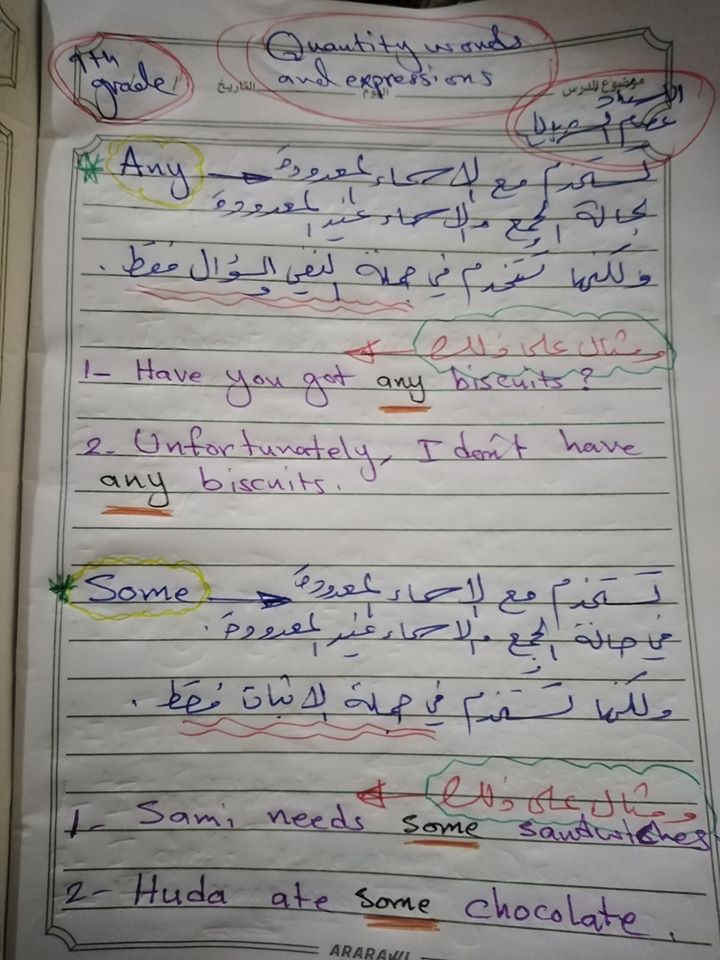 9th grade
Quantity words
and expressions
موضوع الدرس
اليوم
التاريخ
الأستاذ
Any → تستخدم مع الأسماء المعدودة
بحالة الجمع والأسماء غير المعدودة
ولكنها تستخدم في جملة النفي والسؤال فقط .
ومثال على ذلك
1- Have you got any biscuits?
2- Unfortunately, I don't have
any biscuits.
Some → تستخدم مع الأسماء المعدودة
في حالة الجمع والأسماء غير المعدودة .
ولكنها تستخدم في جملة الإثبات فقط .
ومثال على ذلك
1- Sami needs some sandwiches
2- Huda ate some chocolate.
ARARAWI